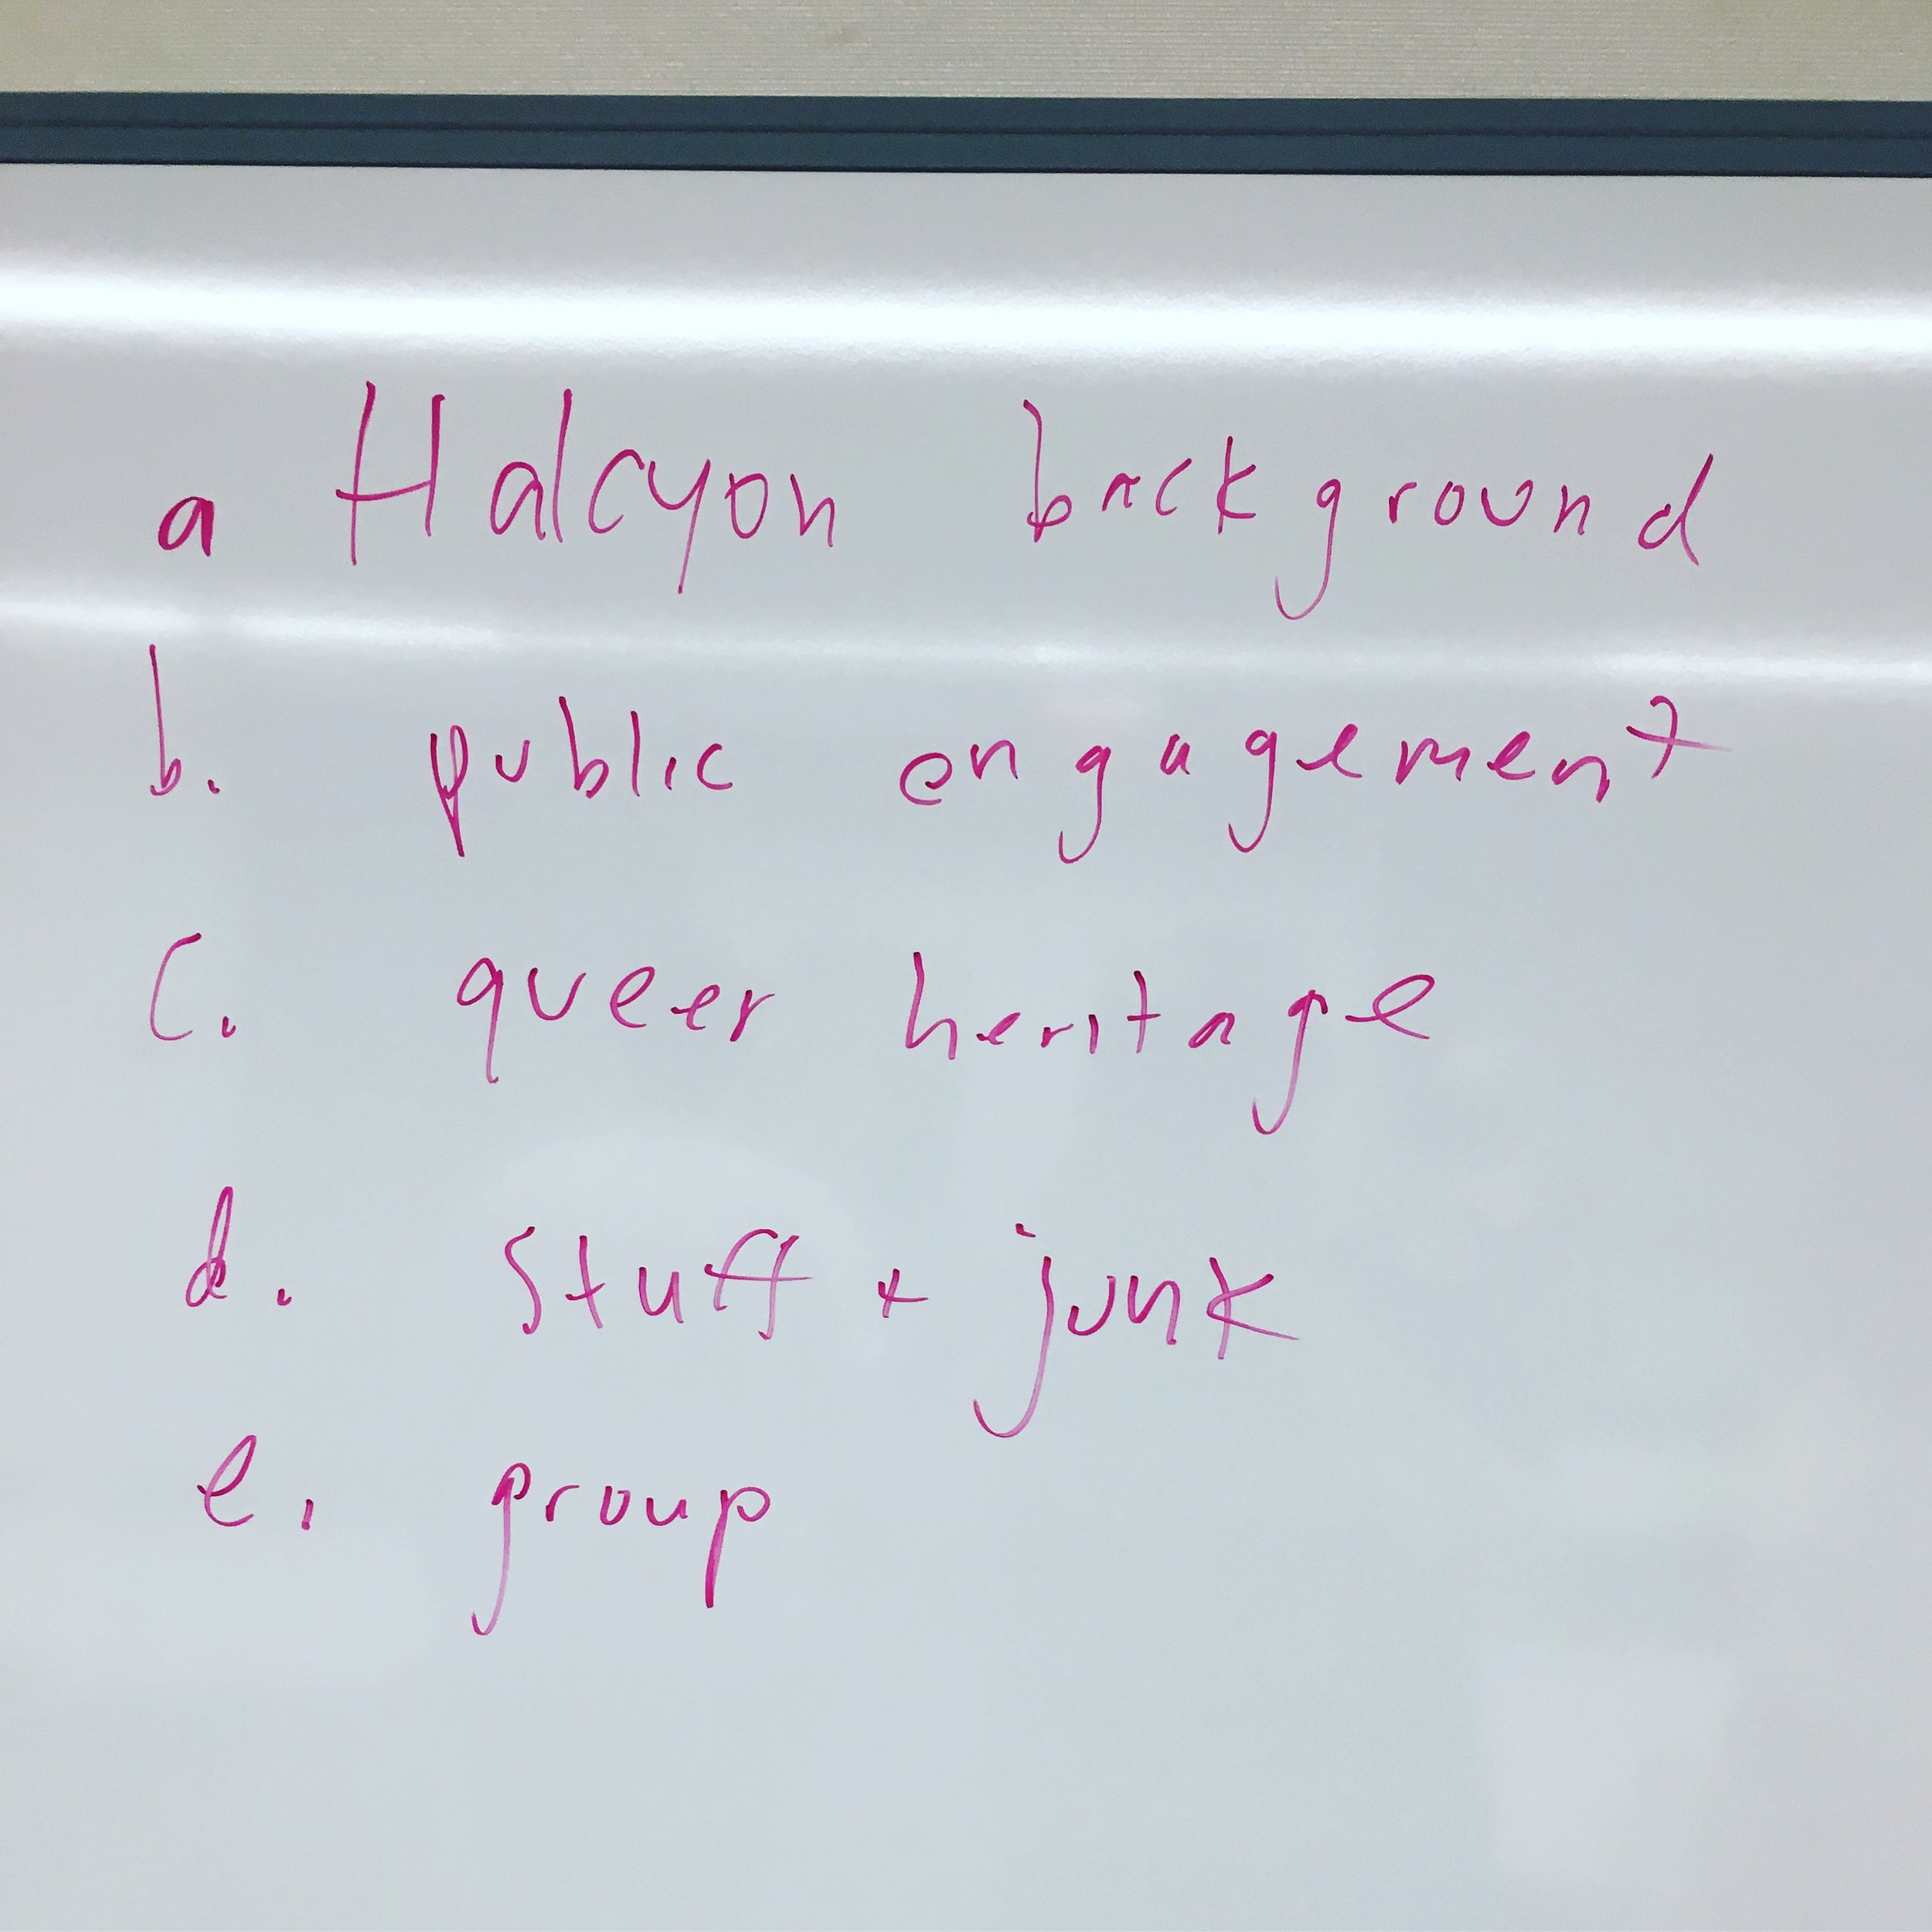 a Halcyon background
b. public engagement
c. queer heritage
d. stuff + junk
e. group